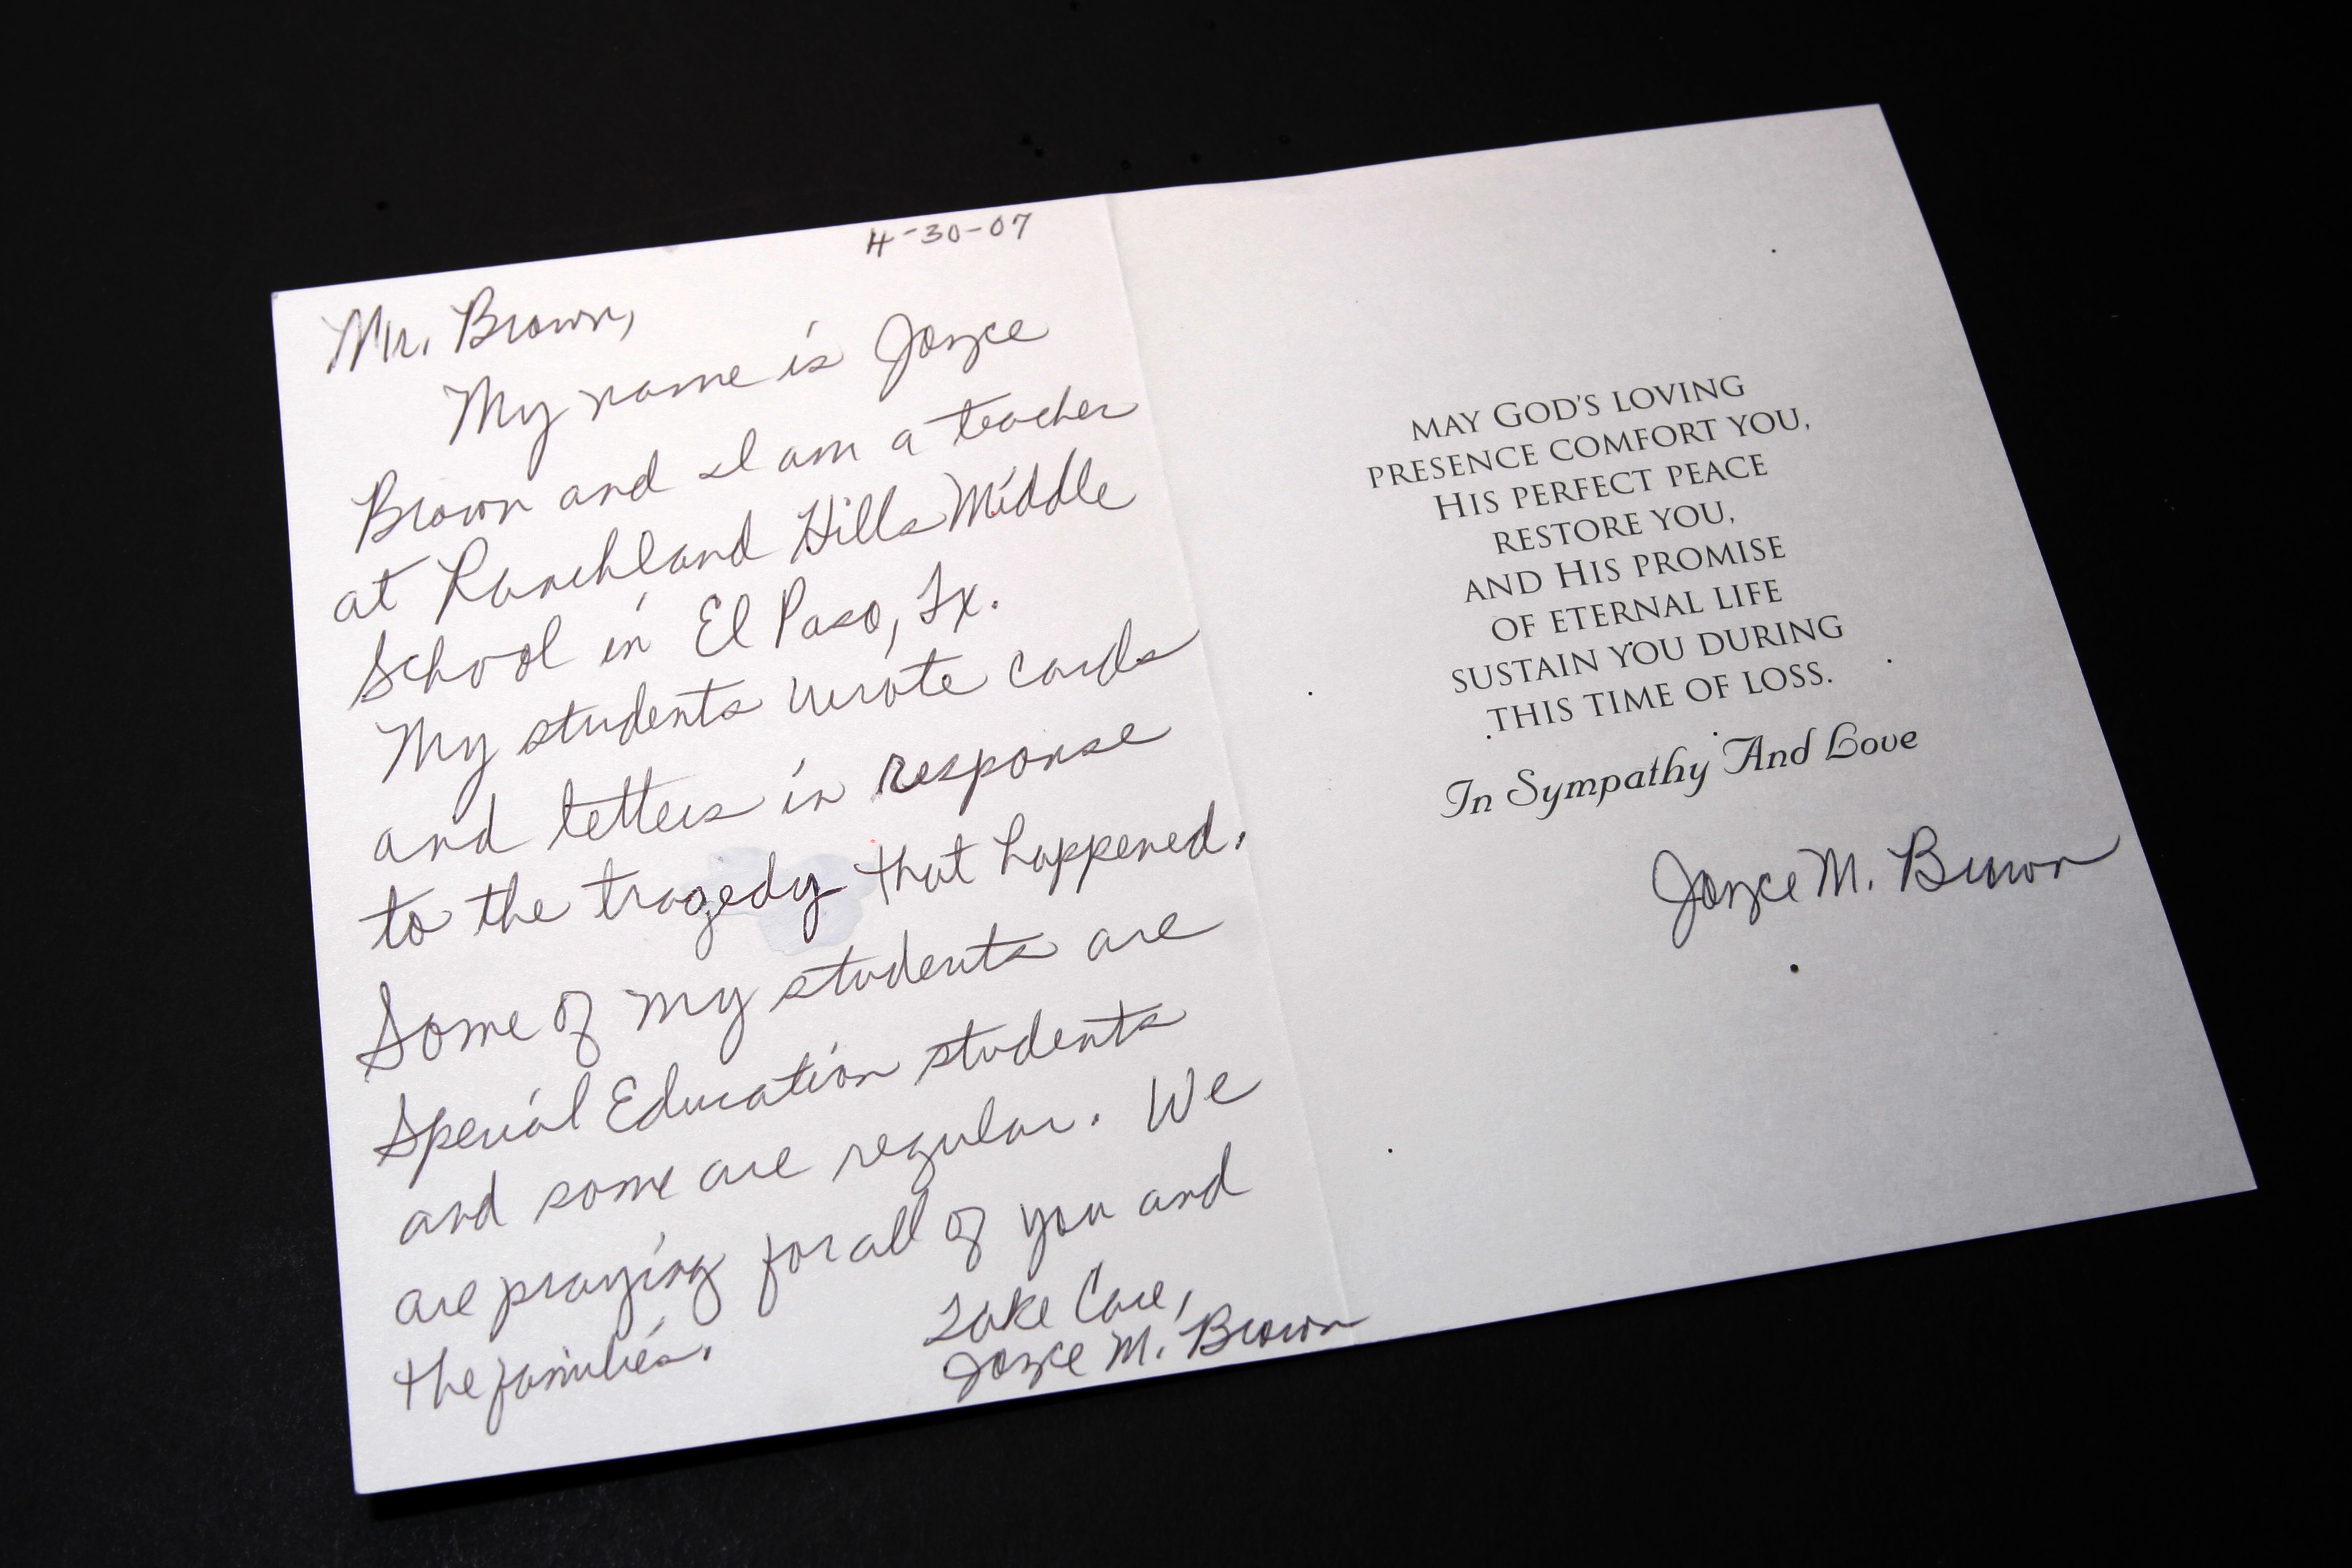 4-30-07
Mr. Brown,
My name is Joyce
Brown and I am a teacher
at Ranchland Hills Middle
School in El Paso, Tx.
My students wrote cards
and letters in response
to the tragedy that happened.
Some of my students are
Special Education students
and some are regular. We
are praying for all of you and
the families.
Take Care,
Joyce M. Brown
MAY GOD'S LOVING
PRESENCE COMFORT YOU,
HIS PERFECT PEACE
RESTORE YOU,
AND HIS PROMISE
OF ETERNAL LIFE
SUSTAIN YOU DURING
THIS TIME OF LOSS.
In Sympathy And Love
Joyce M. Brown